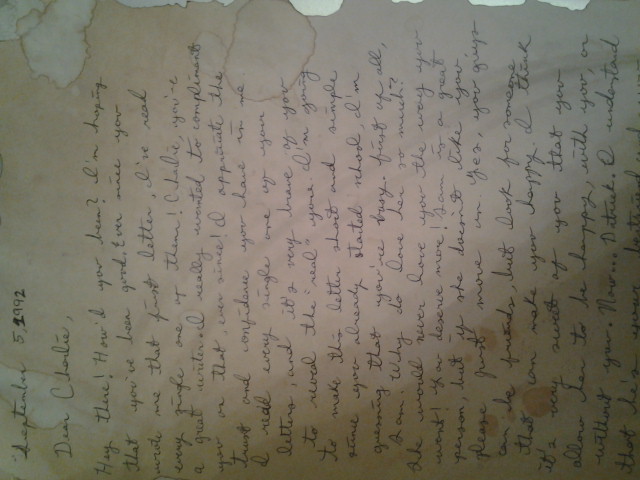 September 5 1992
Dear Charlie,
Hey there! How'd you been? I'm hoping
that you've been good. Ever since you
wrote me that first letter, I've read
every single one of them! Charlie you're
a great writer. I really wanted to compliment
you on that, ever since! I appriciate the
trust and confidence you have in me.
I read every single one of your
letters, and it's very brave of you
to reveal the "real" you. I'm going
to make this letter short and simple
since you already stated school I'm
guessing that you're busy. First of all,
Sam. Why do love her so much?
She would never love you the way you
want! You deserve more! Sam is a great
person, but if she doesn't like you
please just move on. Yes, you guys
can be friends, but look for someone
that can make you happy. I think
it's very sweet of you that you
allow her to be happy, with you, or
without you. Now... Patrick. I understand
that he's never